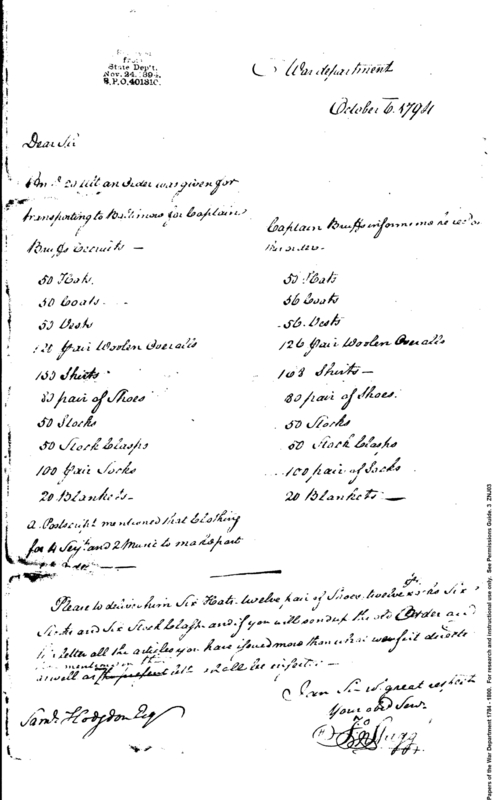 from
State Dep't.
Nov. 24. 1894.
War department
October 6. 1794
Dear Sir
an order was given for
transporting to Baltimore for Captain
Bruffs recruits —
50 Hats.
50 Coats
50 Vests
pair Woolen Overalls
150 Shirts
80 pair of Shoes
50 Stocks
50 Stock Clasps
100 pair Socks
20 Blankets
Captain Bruff informs me he
the order
50 Hats
56 Coats
56 Vests
126 pair Woolen Overalls
168 Shirts —
80 pair of Shoes.
50 Stocks
50 Stock Clasps
100 pair of Socks
20 Blankets —
a Postscript mentioned that Clothing
for 4 Sergts and 2 Music to make part
Please to deliver him Six Hats twelve pair of Shoes twelve Six
Stocks and Six Stock Clasps and if you will send up the old Order and
letter all the articles you have issued more than
as well as shall be
I am Sir wt great respect
Your obd Serv.
Saml. Hodgdon Esq
Papers of the War Department 1784 - 1800. For research and instructional use only. See Permissions Guide. 3 ZNJ03